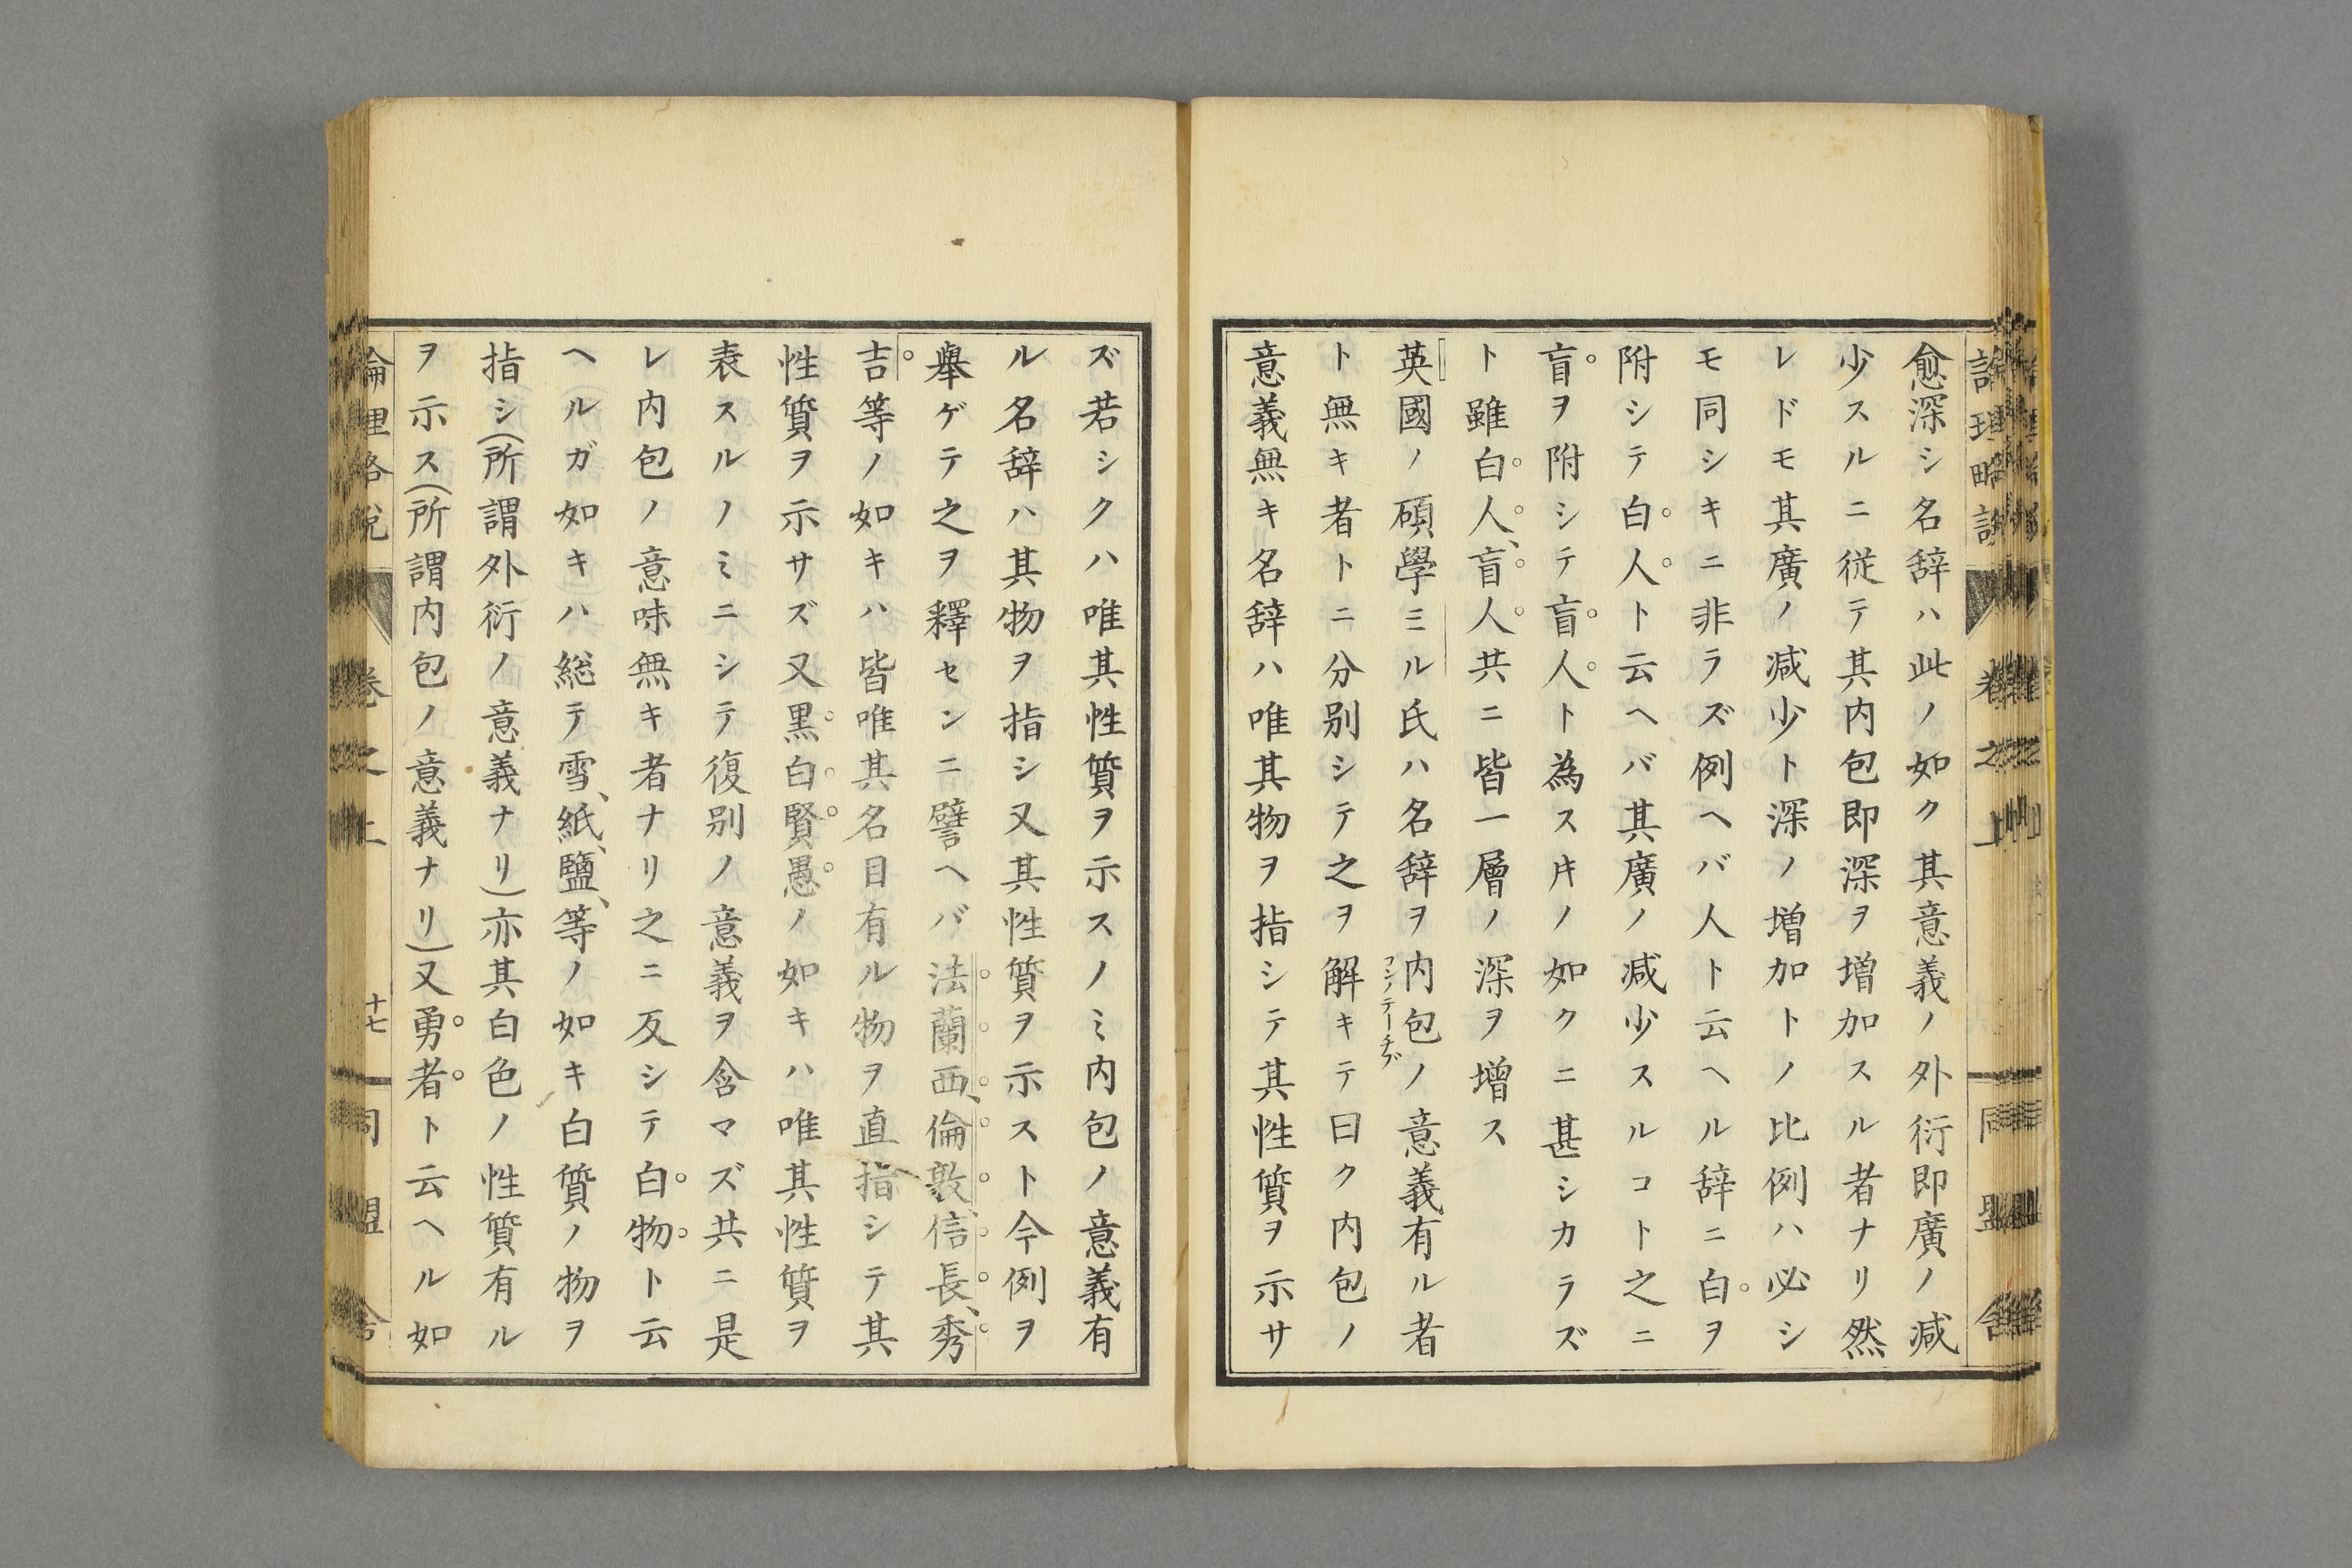 愈深シ名辞ハ此ノ如ク其意義ノ外衍即廣ノ減
少スルニ従テ其内包即深ヲ増加スル者ナリ然
レドモ其廣ノ減少ト深ノ増加トノ比例ハ必シ
モ同シキニ非ラズ例ヘバ人ト云ヘル辞ニ白ヲ
附シテ白人ト云ヘバ其廣ノ減少スルコト之ニ
盲ヲ附シテ盲人ト為ス𪜈ノ如クニ甚シカラズ
ト雖白人、盲人共ニ皆一層ノ深ヲ增ス
英國ノ碩學ミル氏ハ名辞ヲ内包ノ意義有ル者
コンノテーチブ
ト無キ者トニ分別シテ之ヲ解キテ曰ク内包ノ
意義無キ名辞ハ唯其物ヲ指シテ其性質ヲ示サ
ズ若シクハ唯其性質ヲ示スノミ内包ノ意義有
ル名辞ハ其物ヲ指シ又其性質ヲ示スト今例ヲ
舉ゲテ之ヲ釋センニ譬ヘバ法蘭西、倫敦、信長、秀
吉等ノ如キハ皆唯其名目有ル物ヲ直指シテ其
性質ヲ示サズ又黒白賢愚ノ如キハ唯其性質ヲ
表スルノミニシテ復別ノ意義ヲ含マズ共ニ是
レ内包ノ意味無キ者ナリ之ニ反シテ白物ト云
ヘルガ如キハ総テ雪、紙、鹽、等ノ如キ白質ノ物ヲ
指シ(所謂外衍ノ意義ナリ)亦其白色ノ性質有ル
ヲ示ス(所謂内包ノ意義ナリ)又勇者ト云ヘル如
論理略説 卷之上 十七 同盟舎